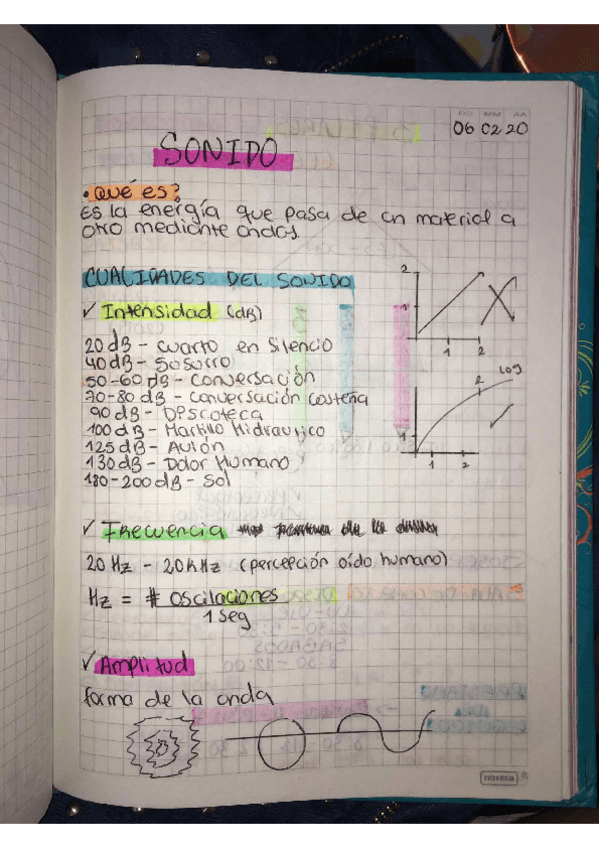 06 02 20
SONIDO
• QUÉ ES?
ES la energía que pasa de un material a
otro mediante ondas
CUALIDADES DEL SONIDO
✓ Intensidad (dB)
20 dB - Cuarto en Silencio
40 dB - Sosorro
50-60 dB - Conversación
70-80 dB - Conversación Costeña
90 dB - DPscoteca
100 dB - Martillo Hidraurico
125 dB - Avión
130 dB - Dolor Humano
180-200 dB - Sol
2
1
1 2
Log
2
1
1 2
✓ Frecuencia
20 Hz - 20KHz (percepción oído humano)
Hz = # oscilaciones
1 seg
✓ Amplitud
forma de la onda
norma